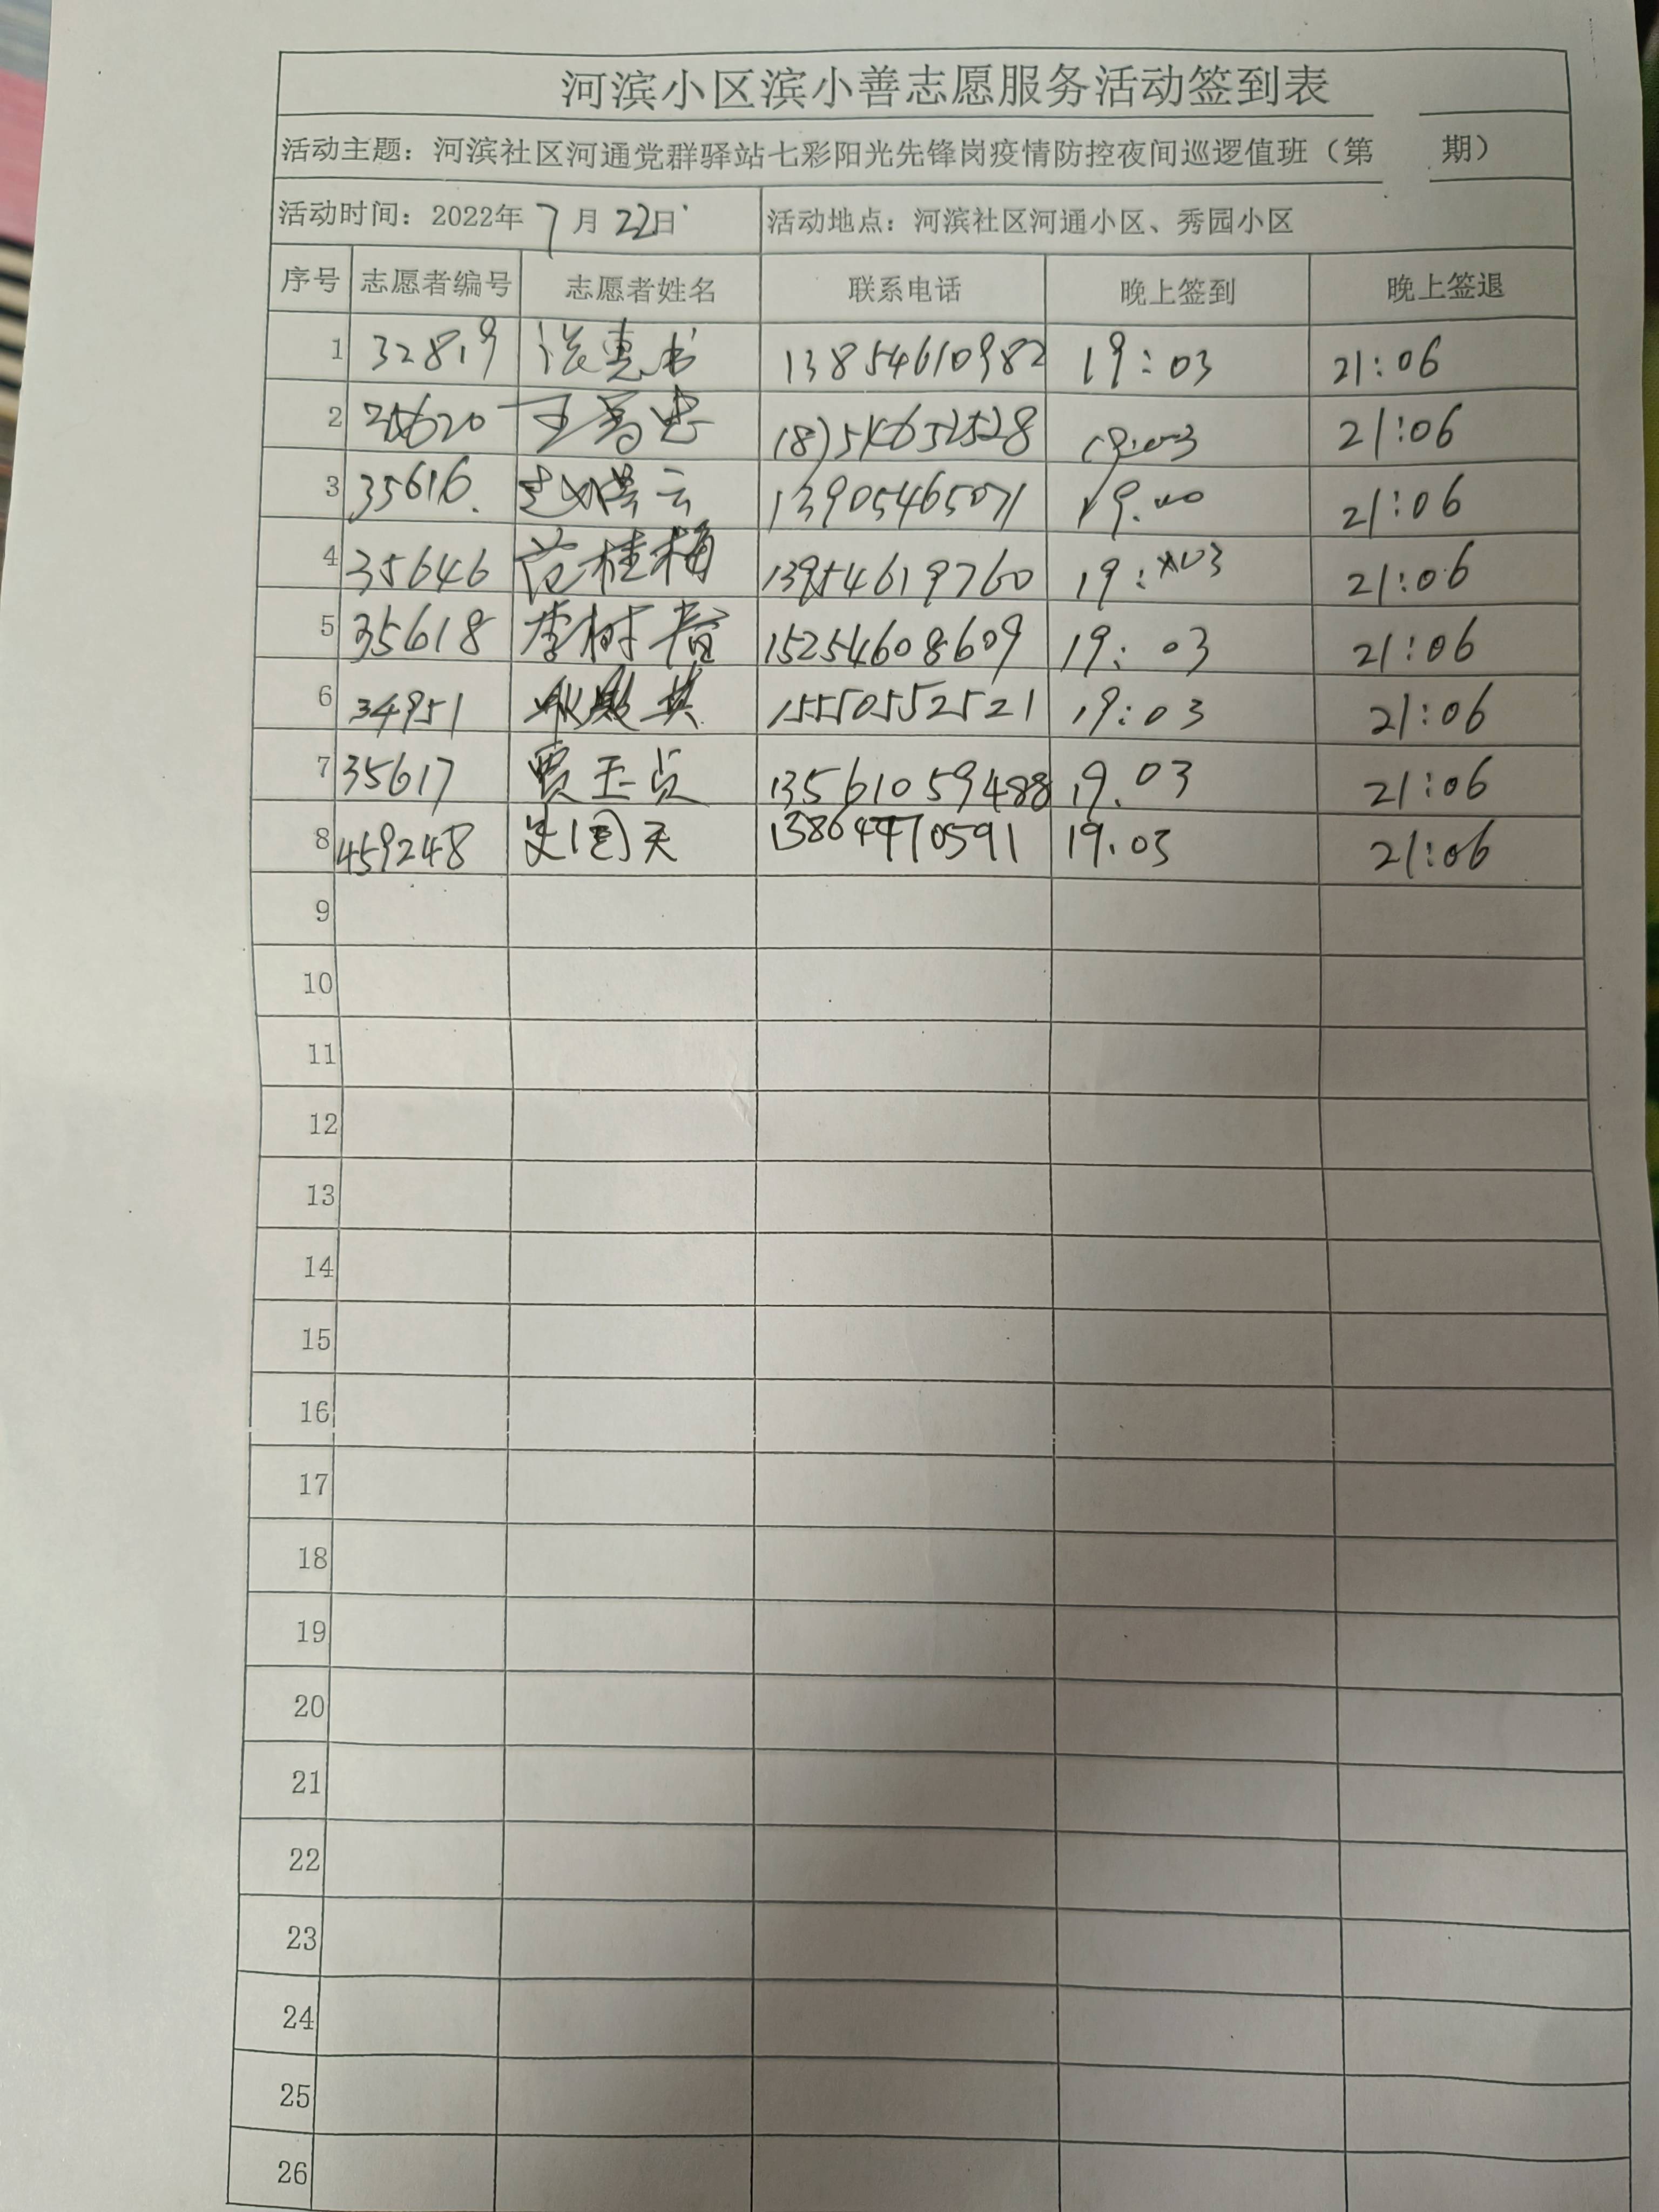 河滨小区滨小善志愿服务活动签到表
活动主题：河滨社区河通党群驿站七彩阳光先锋岗疫情防控夜间巡逻值班（第 期）
活动时间：2022年 7 月 22日 活动地点：河滨社区河通小区、秀园小区
序号 志愿者编号 志愿者姓名 联系电话 晚上签到 晚上签退
1 32819 13854610982 19:03 21:06
2 19:03 21:06
3 35616. 13905465071 19.00 21:06
4 35646 范桂梅 13954619760 19: 03 21:06
5 35618 李树春 15254608609 19: 03 21:06
6 34951 15550552521 19:03 21:06
7 35617 贾玉贞 13561059488 19.03 21:06
8 459248 13864770591 19.03 21:06
9
10
11
12
13
14
15
16
17
18
19
20
21
22
23
24
25
26